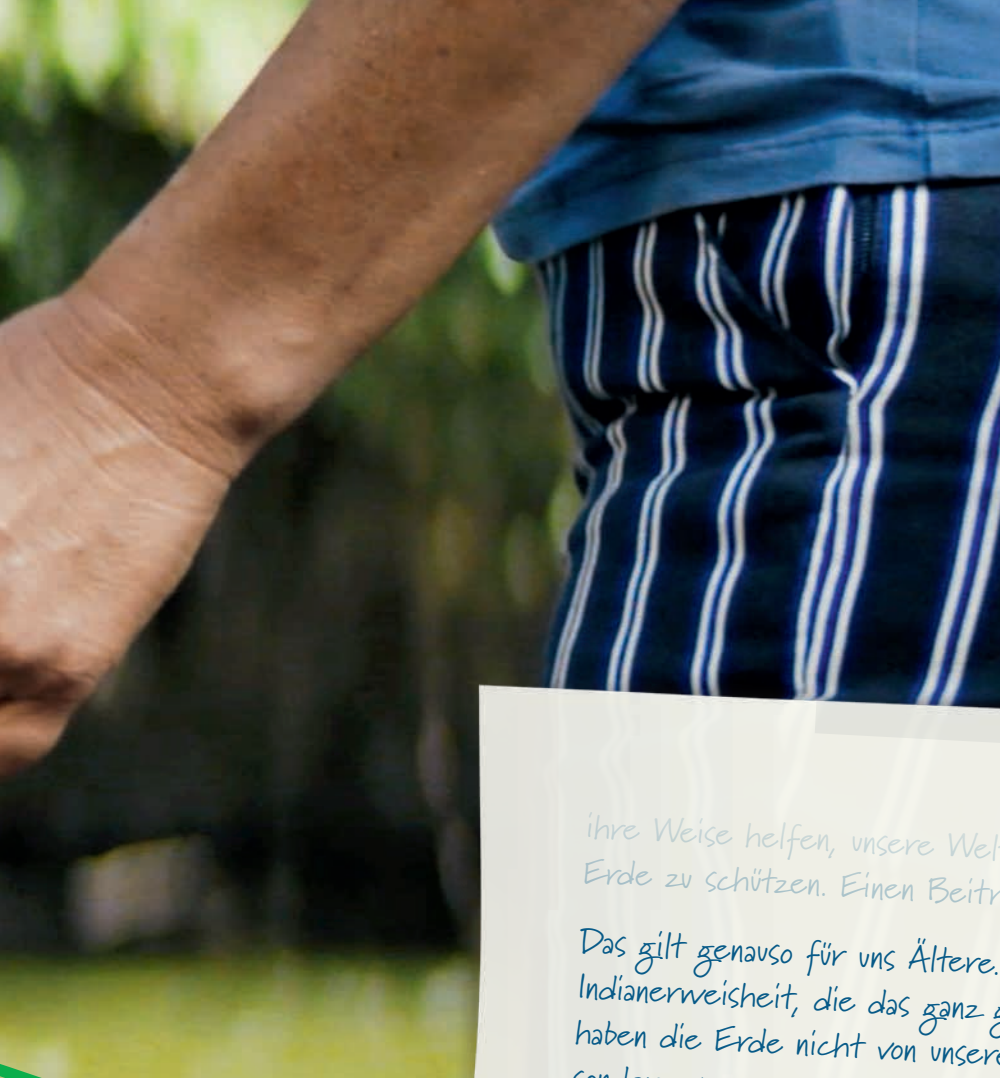 ihre Weise helfen, unsere
Erde zu schützen. Einen
Das gilt genauso für uns Ältere.
Indianerweisheit, die das ganz
haben die Erde nicht von